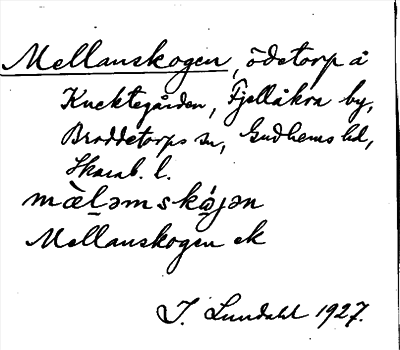 Mellanskogen, ödetorp å
Knektegården, Fjellåkra by,
Broddetorps sn, Gudhems hd,
Skarab. l.
mæ̀l̠əmskó̠jən
Mellanskogen ek
I. Lundahl 1927.